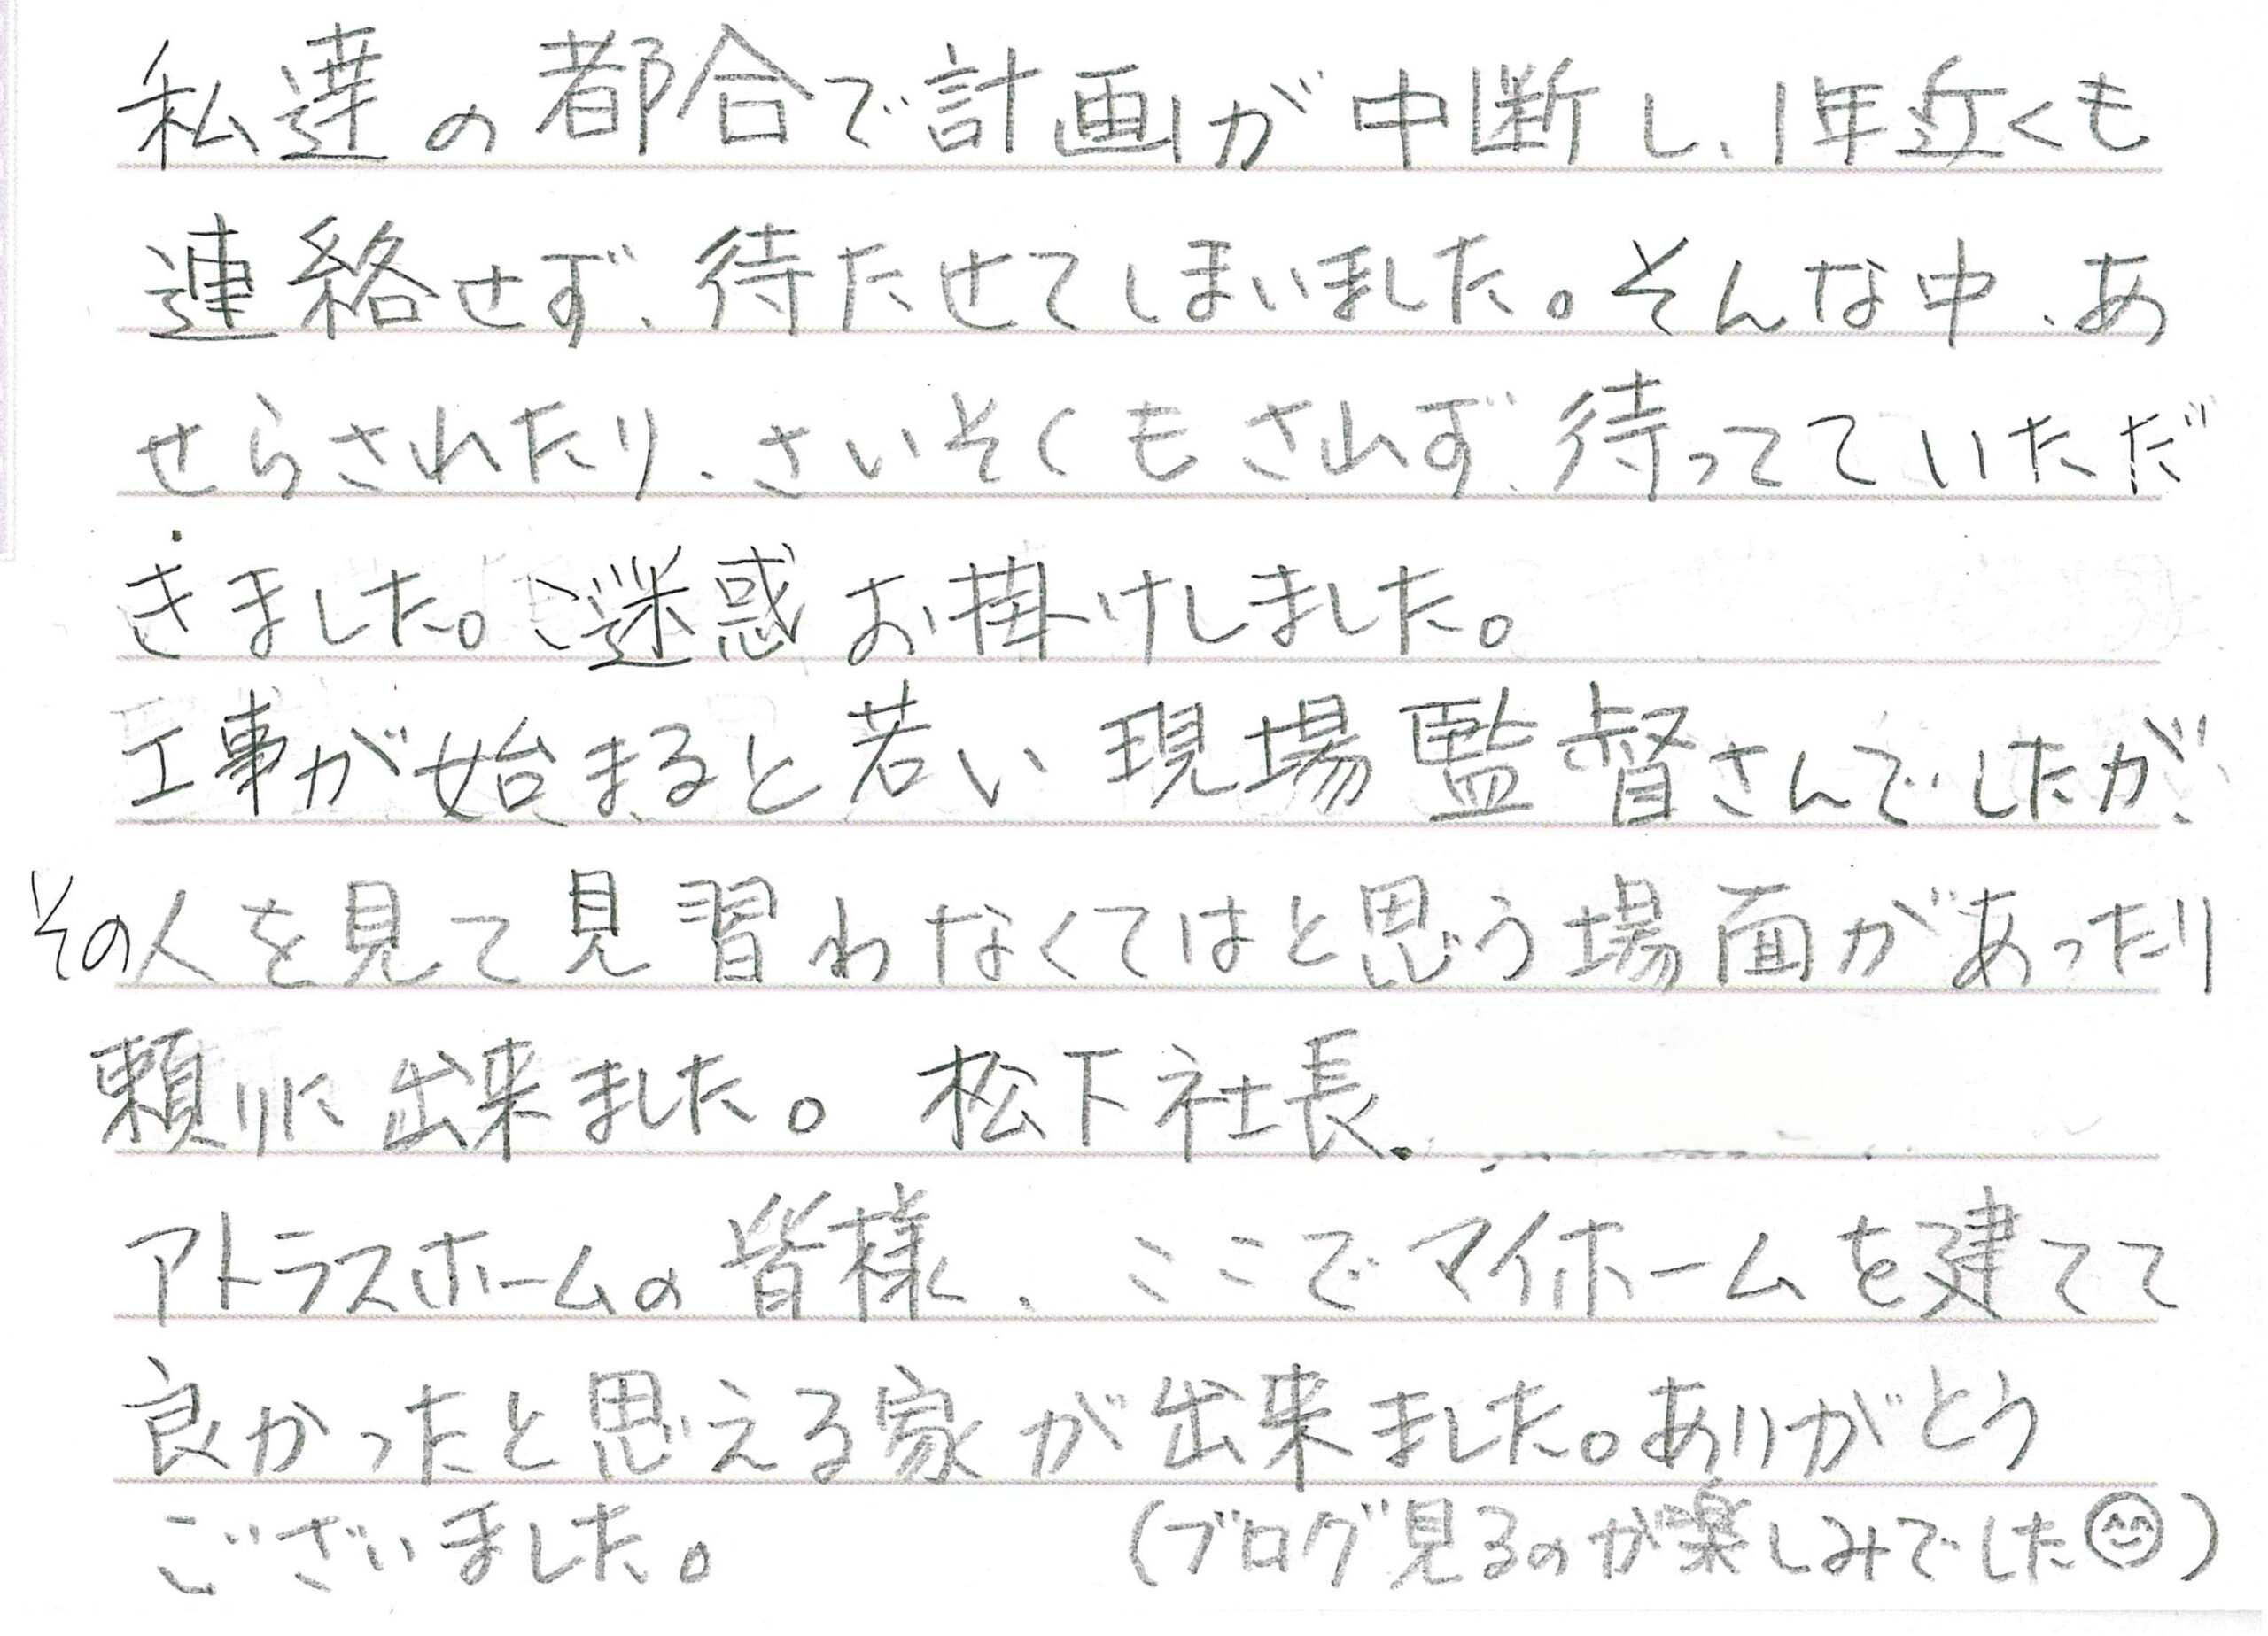 私達の都合で計画が中断し、1年近くも
連絡せず、待たせてしまいました。そんな中、あ
せらされたり、さいそくもされず、待ってていただ
きました。ご迷惑お掛けしました。
工事が始まると若い現場監督さんでしたが、
その人を見て見習わなくてはと思う場面があったり
頼りに出来ました。松下社長、
アトラスホームの皆様、ここでマイホームを建てて
良かったと思える家が出来ました。ありがとう
ございました。
(ブログ見るのが楽しみでした😊)